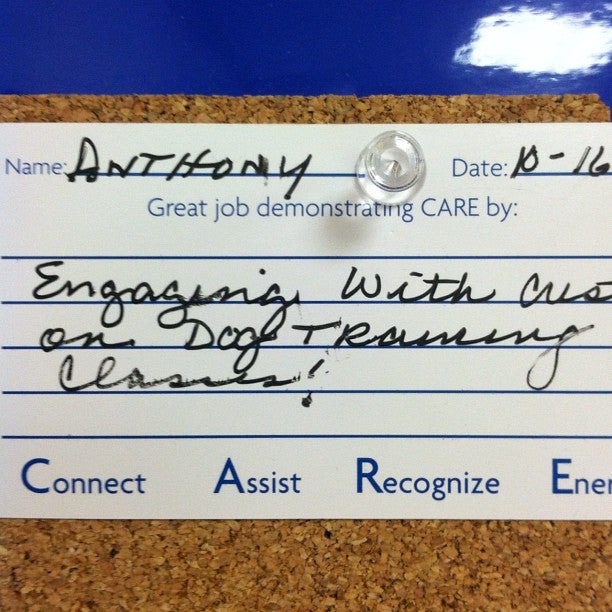 Name: ANTHONY Date: 10-16
Great job demonstrating CARE by:
Engaging With Cus
on Dog Training
Classes!
Connect Assist Recognize Ener